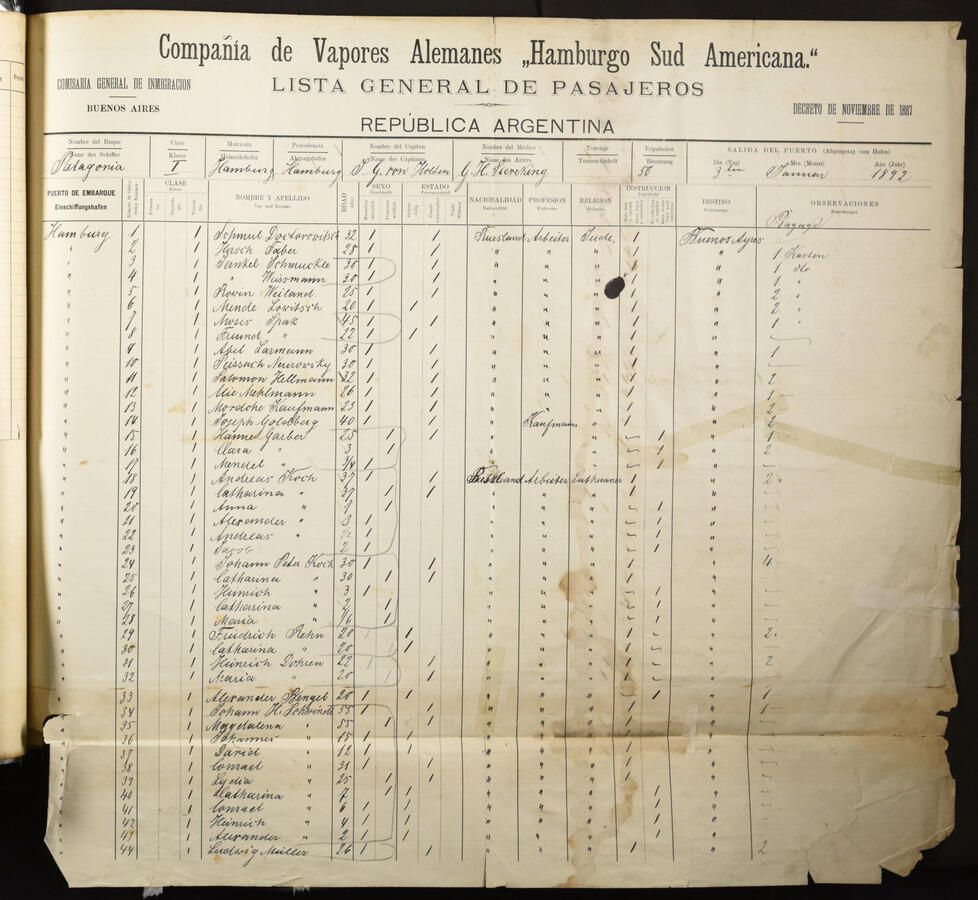 Compañía de Vapores Alemanes „Hamburgo Sud Americana.“
COMISARIA GENERAL DE INMIGRACION
LISTA GENERAL DE PASAJEROS
BUENOS AIRES
DECRETO DE NOVIEMBRE DE 1887
REPÚBLICA ARGENTINA
Nombre del Buque Clase Matricula Procedencia Nombre del Capitan Nombre del Médico Tonelaje Tripulacion SALIDA DEL PUERTO (Abgangstag vom Hafen)
Name des Schiffes Klasse Heimathshafen Abgangshafen Name des Capitains Name des Arztes Tonnen-Gehalt Besatzung Dia (Tag) Mes (Monat) Año (Jahr)
Patagonia I Hamburg Hamburg von Holden G. H. 50 3ten Januar 1892
PUERTO DE EMBARQUE CLASE SEXO ESTADO INSTRUCCION
Einschiffungshafen Klasse NOMBRE Y APELLIDO EDAD NACIONALIDAD PROFESION RELIGION DESTINO OBSERVACIONES
Bagage
Hamburg 1 1 Schmul Doctorowitsch 32 1 1 Russland Arbeiter Jude 1 Buenos Ayres
" 2 1 Hirsch Faber 28 1 1 " " " 1 " 1 Kasten
" 3 1 Jankel Schmuckle 30 1 1 " " " 1 " 1 dto
" 4 1 " Weissmann 30 1 1 " " " 1 " 1 "
" 5 1 Weiland 25 1 1 " " 1 " 2 "
" 6 1 Mende Lowitsch 20 1 1 " " " 1 " 2 "
" 7 1 Moses Spak 45 1 1 " " " 1 " 1 "
" 8 1 " 22 1 1 " " " 1 "
" 9 1 Abel Larmann 30 1 1 " " " 1 " 1
" 10 1 Peissach Neurowsky 30 1 1 " " " 1 " 1
" 11 1 Salomon Hellmann 32 1 1 " " " 1 " 2
" 12 1 Mehlmann 26 1 1 " " " 1 " 1
" 13 1 Mordche Kaufmann 23 1 1 " " " 1 " 2
" 14 1 Joseph Goldberg 40 1 1 " Kaufmann " 1 " 2
" 15 1 Hanne Garber 25 1 1 1 " 1
" 16 1 Clara " 3 1 1 " 2
" 17 1 Mendel " 3/4 1 1 "
" 18 1 Andreas Koch 37 1 1 Russland Arbeiter Lutheraner 1 " 2
" 19 1 Catharina " 37 1 1 " " " 1 "
" 20 1 Anna " 9 1 " " " 1 "
" 21 1 Alexander " 8 1 " " " 1 "
" 22 1 Andreas " 1 " " " 1 "
" 23 1 Jacob " 2 1 " " " 1 "
" 24 1 Johann Peter Koch 30 1 1 " " " 1 " 4
" 25 1 Catharina " 30 1 1 " " " 1 "
" 26 1 Heinrich " 3 1 " " " 1 "
" 27 1 Catharina " 2 1 " " " 1 "
" 28 1 Maria " 1/6 1 " " " 1 "
" 29 1 Friedrich Rehn 20 1 1 " " " 1 " 2
" 30 1 Catharina " 20 1 1 " " " 1 "
" 31 1 Heinrich Dohren 22 1 1 " " " 1 " 2
" 32 1 Maria " 20 1 1 " " " 1 "
" 33 1 Alexander Bengel 20 1 1 " " " 1 " 1
" 34 1 Johann H. 55 1 1 " " " 1 " 1
" 35 1 Magdalena 55 1 1 " " " 1 "
" 36 1 Johannes " 15 1 1 " " " 1 "
" 37 1 David " 12 1 1 " " " 1 "
" 38 1 Conrad " 31 1 1 " " " 1 "
" 39 1 Lydia " 25 1 1 " " " 1 "
" 40 1 Catharina " 7 1 1 " " " 1 "
" 41 1 Conrad " 6 1 1 " " " 1 "
" 42 1 Heinrich " 4 1 1 " " " 1 "
" 43 1 Alexander " 2 1 1 " " " 1 "
" 44 1 Ludwig Müller 26 1 1 " " " 1 " 2